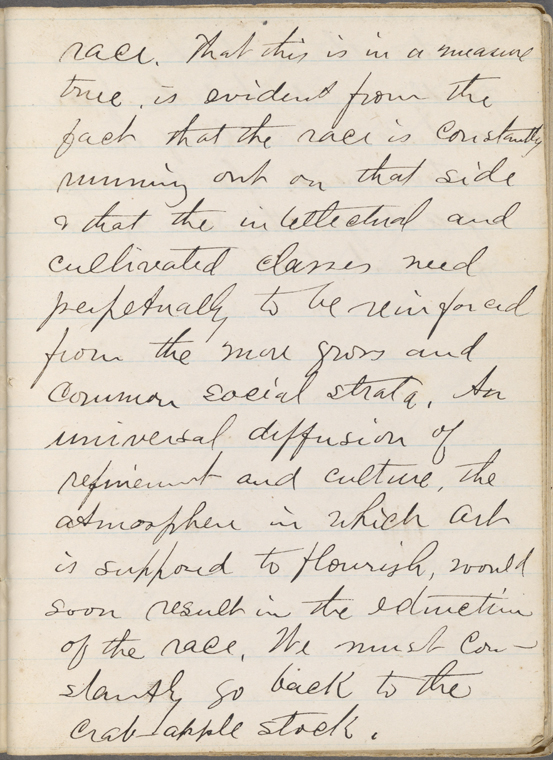 race. That this is in a measure
true, is evident from the
fact that the race is constantly
running out on that side
& that the intellectual and
cultivated classes need
perpetually to be reinforced
from the more gross and
common social strata. An
universal diffusion of
refinement and culture, the
atmosphere in which art
is supposed to flourish, would
soon result in the extinction
of the race. We must con-
stantly go back to the
crab-apple stock.